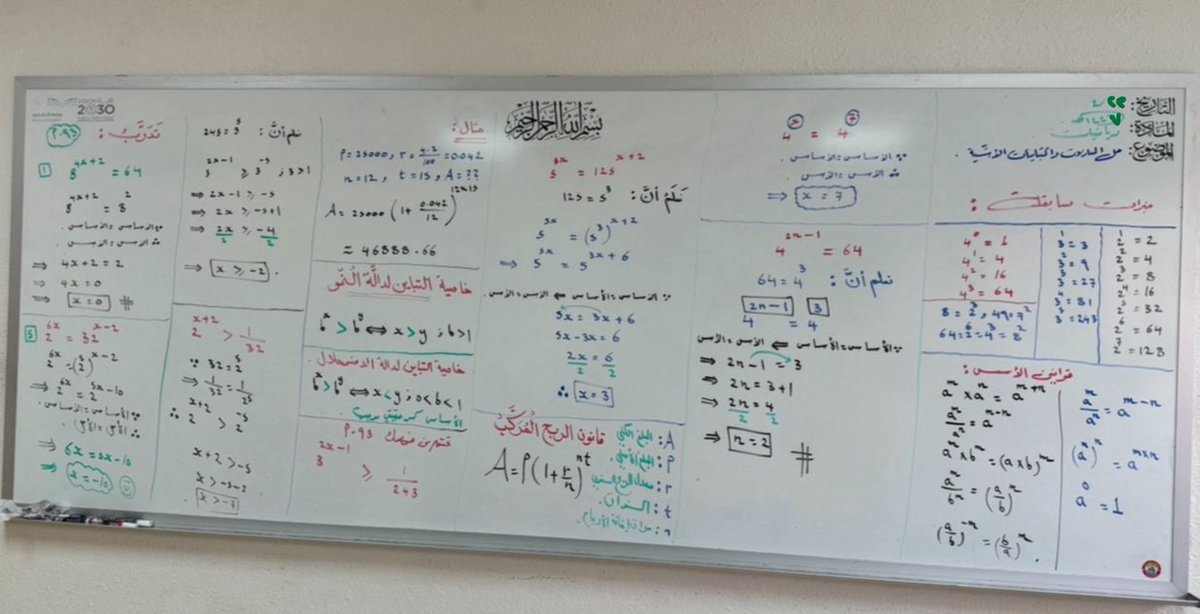 بسم الله الرحمن الرحيم
التاريخ:
المادة: رياضيات
الموضوع: حل المعادلات والمتباينات الأسية.
خبرات سابقة:
4⁰ = 1
4¹ = 4
4² = 16
4³ = 64
3¹ = 3
3² = 9
3³ = 27
3⁴ = 81
3⁵ = 243
2¹ = 2
2² = 4
2³ = 8
2⁴ = 16
2⁵ = 32
2⁶ = 64
2⁷ = 128
8 = 2³, 49 = 7²
64 = 2⁶ = 4³ = 8²
قوانين الأسس:
aᵐ × aⁿ = aᵐ⁺ⁿ
aⁿ × bⁿ = (a×b)ⁿ
aⁿ/bⁿ = (a/b)ⁿ
(a/b)⁻ⁿ = (b/a)ⁿ.
aᵐ/aⁿ = aᵐ⁻ⁿ
= aᵐˣⁿ
a⁰ = 1
4ˣ = 4⁷
∵ الأساس = الأساس.
∴ الأس = الأس.
⇒ x = 7
4²ⁿ⁻¹ = 64
نعلم أنَّ: 64 = 4³
4^(2n-1) = 4^3
∵ الأساس = الأساس ⇐ الأس = الأس
⇒ 2n-1 = 3
⇒ 2n = 3+1
⇒ 2n/2 = 4/2
⇒ n = 2 #
5^(5x) = 125^(x+2)
نعلم أنَّ: 125 = 5³
5^(5x) = (5³)^(x+2)
⇒ 5^(5x) = 5^(3x+6)
∵ الأساس = الأساس ⇐ الأس = الأس.
5x = 3x + 6
5x - 3x = 6
2x/2 = 6/2
∴ x = 3
قانون الربح المُركَّب
A = P(1 + r/n)^(nt)
A: المبلغ الكلي
P: المبلغ الأصلي.
r: معدل الربح السنوي
t: السنوات.
n: مرات إضافة الأرباح.
مثال:
P = 25000, r = 4.2/100 = 0.042
n = 12, t = 15, A = ??
A = 25000 (1 + 0.042/12)^(12×15)
= 46888.66
خاصية التباين لدالة النمو
bˣ > bʸ ⇔ x > y ; b > 1
خاصية التباين لدالة الاضمحلال
bˣ > bʸ ⇔ x < y ; 0 < b < 1
P.93
3^(2x-1) ≥ 1/243
نعلم أنَّ: 243 = 3⁵
3^(2x-1) ≥ 3^(-5) ; 3 > 1
⇒ 2x-1 ≥ -5
⇒ 2x ≥ -5+1
⇒ 2x/2 ≥ -4/2
⇒ x ≥ -2.
2^(x+2) > 1/32
∵ 32 = 2⁵
⇒ 1/32 = 1/2⁵
∴ 2^(x+2) > 2^(-5)
x+2 > -5
x > -5-2
تدرَّب: P.93
1 8^(4x+2) = 64
8^(4x+2) = 8²
∵ الأساس = الأساس.
∴ الأس = الأس.
⇒ 4x+2 = 2
⇒ 4x = 0
⇒ x = 0 #
2^(6x) = 32^(x-2)
2^(6x) = (2⁵)^(x-2)
⇒ 2^(6x) = 2^(5x-10)
∵ الأساس = الأساس.
∴ الأس = الأس.
⇒ 6x = 5x-10
⇒ x = -10
2030